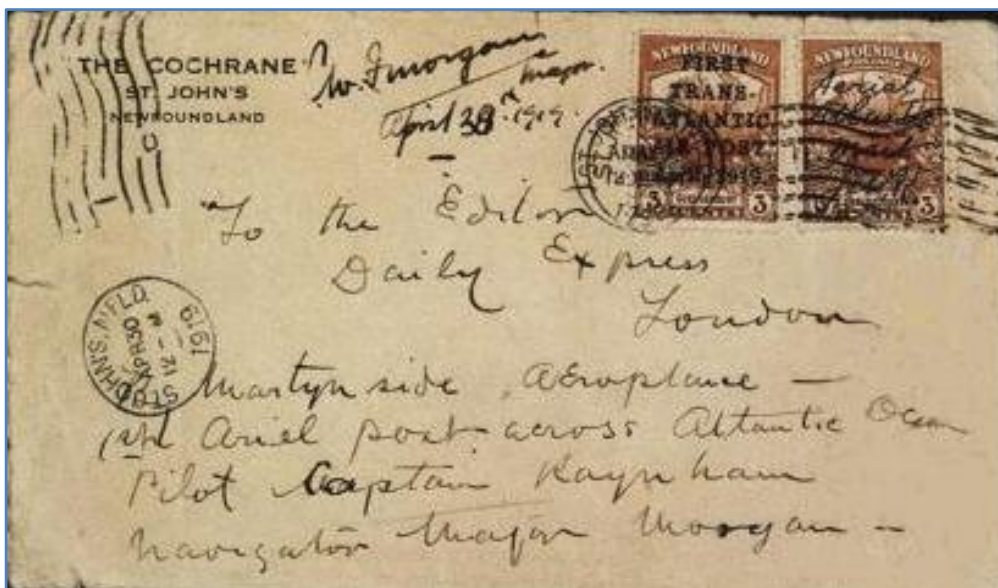 THE COCHRANE
ST. JOHN'S
NEWFOUNDLAND
W. F. Morgan
Major.
April 30th 1919.
NEWFOUNDLAND
FIRST
TRANS-
ATLANTIC
AIR POST
3 CENTS 3
NEWFOUNDLAND
Aerial
Atlantic
3
To the Editor
Daily Express
London
ST. JOHN'S NFLD.
APR 30
12 - M
1919
Martynside Aeroplane -
1st Ariel post across Altantic Ocean
Pilot Captain Raynham
Navigator Major Morgan -